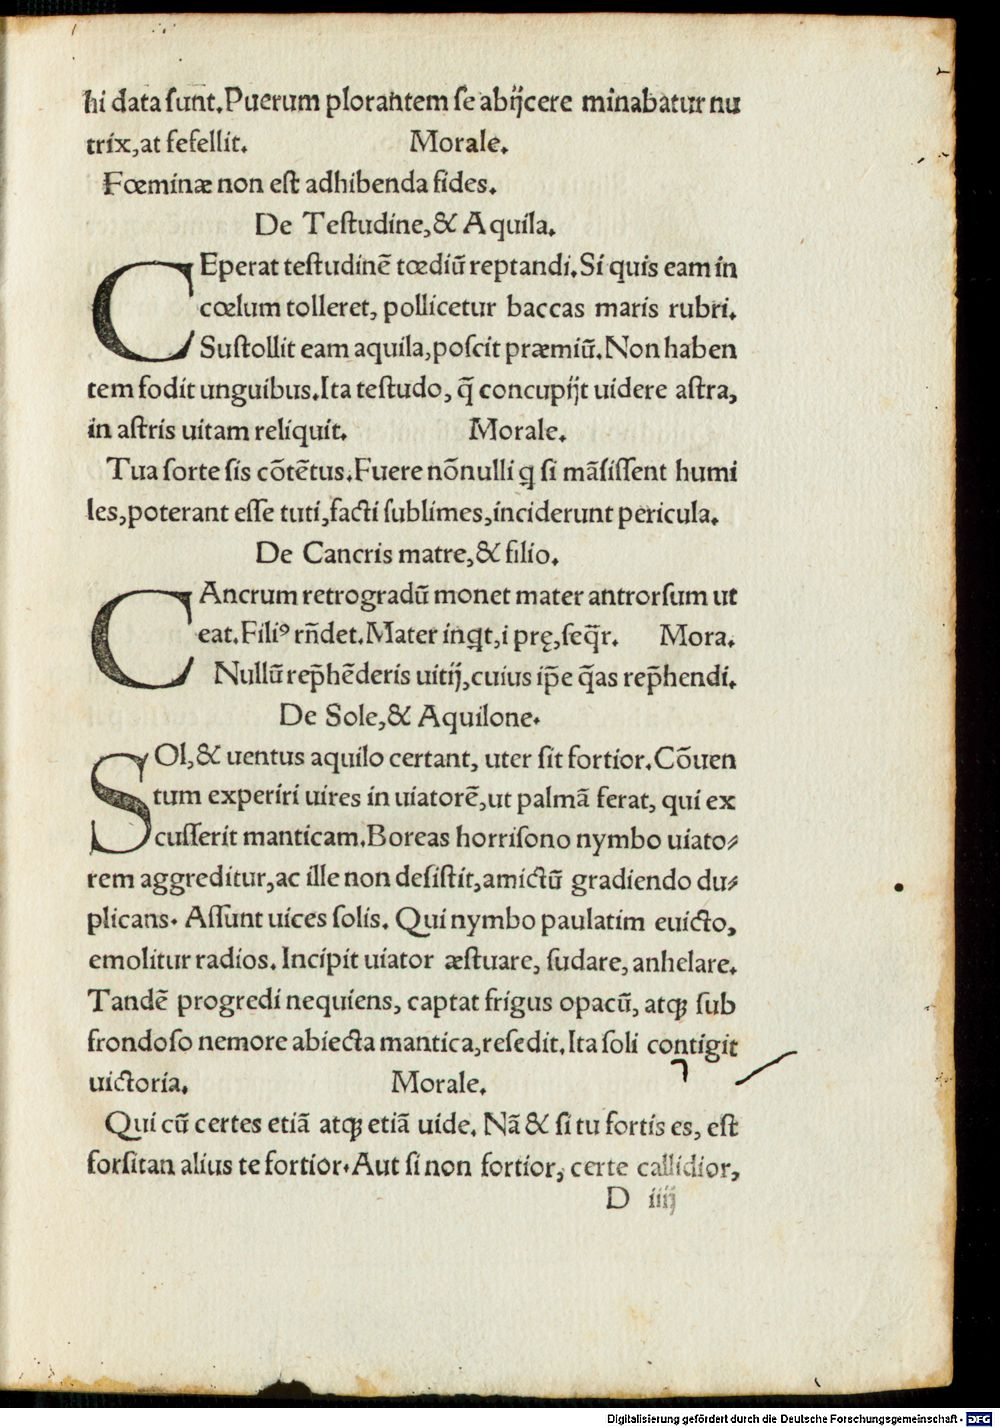 hi data ſunt.Puerum plorantem ſe abijcere minabatur nu
trix,at fefellit. Morale.
Fœminæ non eſt adhibenda fides.
De Teſtudine,& Aquila.
CEperat teſtudinē tœdiū reptandi.Si quis eam in
cœlum tolleret, pollicetur baccas maris rubri.
Suſtollit eam aquila,poſcit præmiū.Non haben
tem fodit unguibus.Ita teſtudo, q̄ concupijt uidere aſtra,
in aſtris uitam reliquit. Morale.
Tua ſorte ſis cōtētus.Fuere nōnulli ꝗ ſi māſiſſent humi
les,poterant eſſe tuti,facti ſublimes,inciderunt pericula.
De Cancris matre,& filio.
CAncrum retrogradū monet mater antrorſum ut
eat.Filiꝰ rn̄det.Mater inꝗt,i prę,ſeq̄r. Mora.
Nullū rep̄hēderis uitij,cuius ip̄e q̄as rep̄hendi.
De Sole,& Aquilone.
SOl,& uentus aquilo certant, uter ſit fortior.Cōuen
tum experiri uires in uiatorē,ut palmā ferat, qui ex
cuſſerit manticam.Boreas horriſono nymbo uiato⸗
rem aggreditur,ac ille non deſiſtit,amictū gradiendo du⸗
plicans. Aſſunt uices ſolis. Qui nymbo paulatim euicto,
emolitur radios. Incipit uiator æſtuare, ſudare, anhelare.
Tandē progredi nequiens, captat frigus opacū, atqꝫ ſub
frondoſo nemore abiecta mantica,reſedit.Ita ſoli contigit
uictoria. Morale.
Qui cū certes etiā atqꝫ etiā uide. Nā & ſi tu fortis es, eſt
forſitan alius te fortior.Aut ſi non fortior, certe callidior,
D iiij
Digitalisierung gefördert durch die Deutsche Forschungsgemeinschaft - DFG